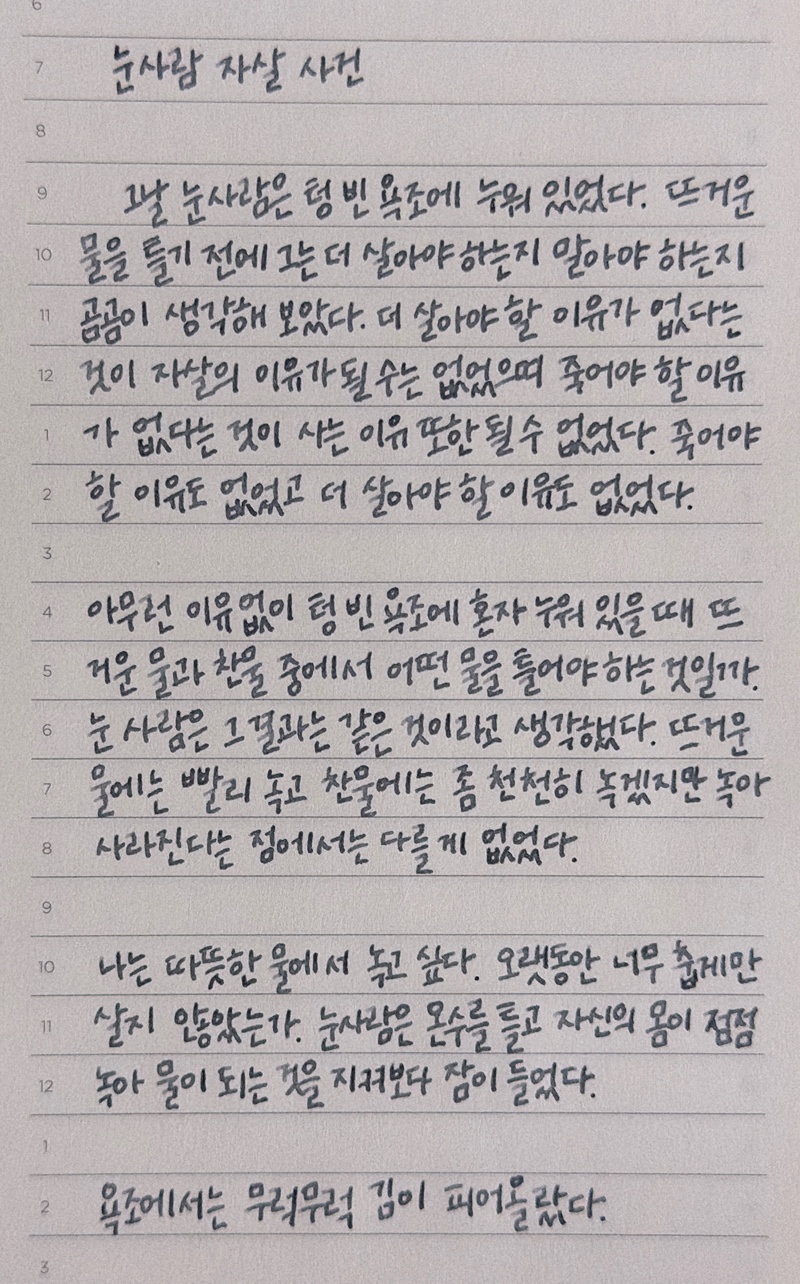 6
7 눈사람 자살 사건
8
9 그날 눈사람은 텅 빈 욕조에 누워 있었다. 뜨거운
10 물을 틀기 전에 그는 더 살아야 하는지 말아야 하는지
11 곰곰이 생각해 보았다. 더 살아야 할 이유가 없다는
12 것이 자살의 이유가 될 수는 없었으며 죽어야 할 이유
1 가 없다는 것이 사는 이유 또한 될 수 없었다. 죽어야
2 할 이유도 없었고 더 살아야 할 이유도 없었다.
3
4 아무런 이유없이 텅 빈 욕조에 혼자 누워 있을 때 뜨
5 거운 물과 찬물 중에서 어떤 물을 틀어야 하는 것일까.
6 눈 사람은 그 결과는 같은 것이라고 생각했다. 뜨거운
7 물에는 빨리 녹고 찬물에는 좀 천천히 녹겠지만 녹아
8 사라진다는 점에서는 다를 게 없었다.
9
10 나는 따뜻한 물에서 녹고 싶다. 오랫동안 너무 춥게만
11 살지 않았는가. 눈사람은 온수를 틀고 자신의 몸이 점점
12 녹아 물이 되는 것을 지켜보다 잠이 들었다.
1
2 욕조에서는 무럭무럭 김이 피어올랐다.
3